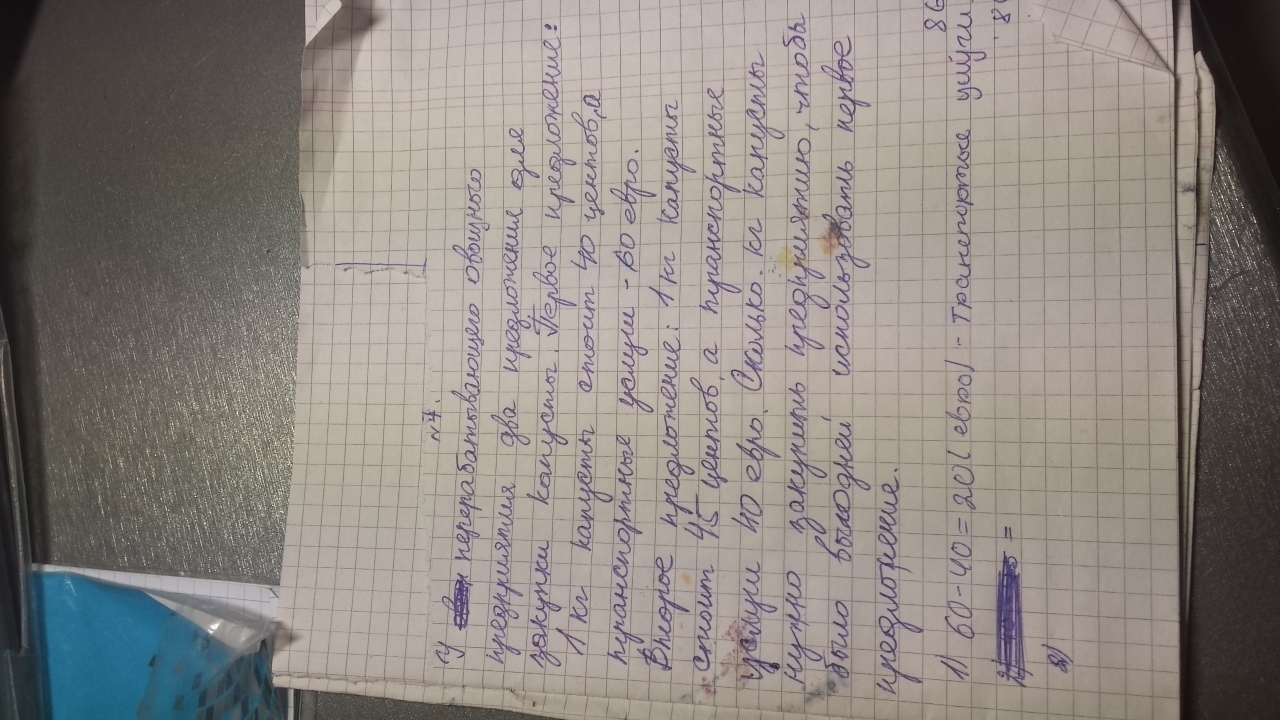 №4.
У перерабатывающего овощного
предприятия два предложения для
закупки капусты. Первое предложение:
1 кг капусты стоит 40 центов, а
транспортные услуги - 60 евро.
Второе предложение: 1 кг капусты
стоит 45 центов, а транспортные
услуги 40 евро. Сколько кг капусты
нужно закупить предприятию, чтобы
было выгодней использовать первое
предложение.
1) 60-40=20(евро) - транспортные услуги
=
2)